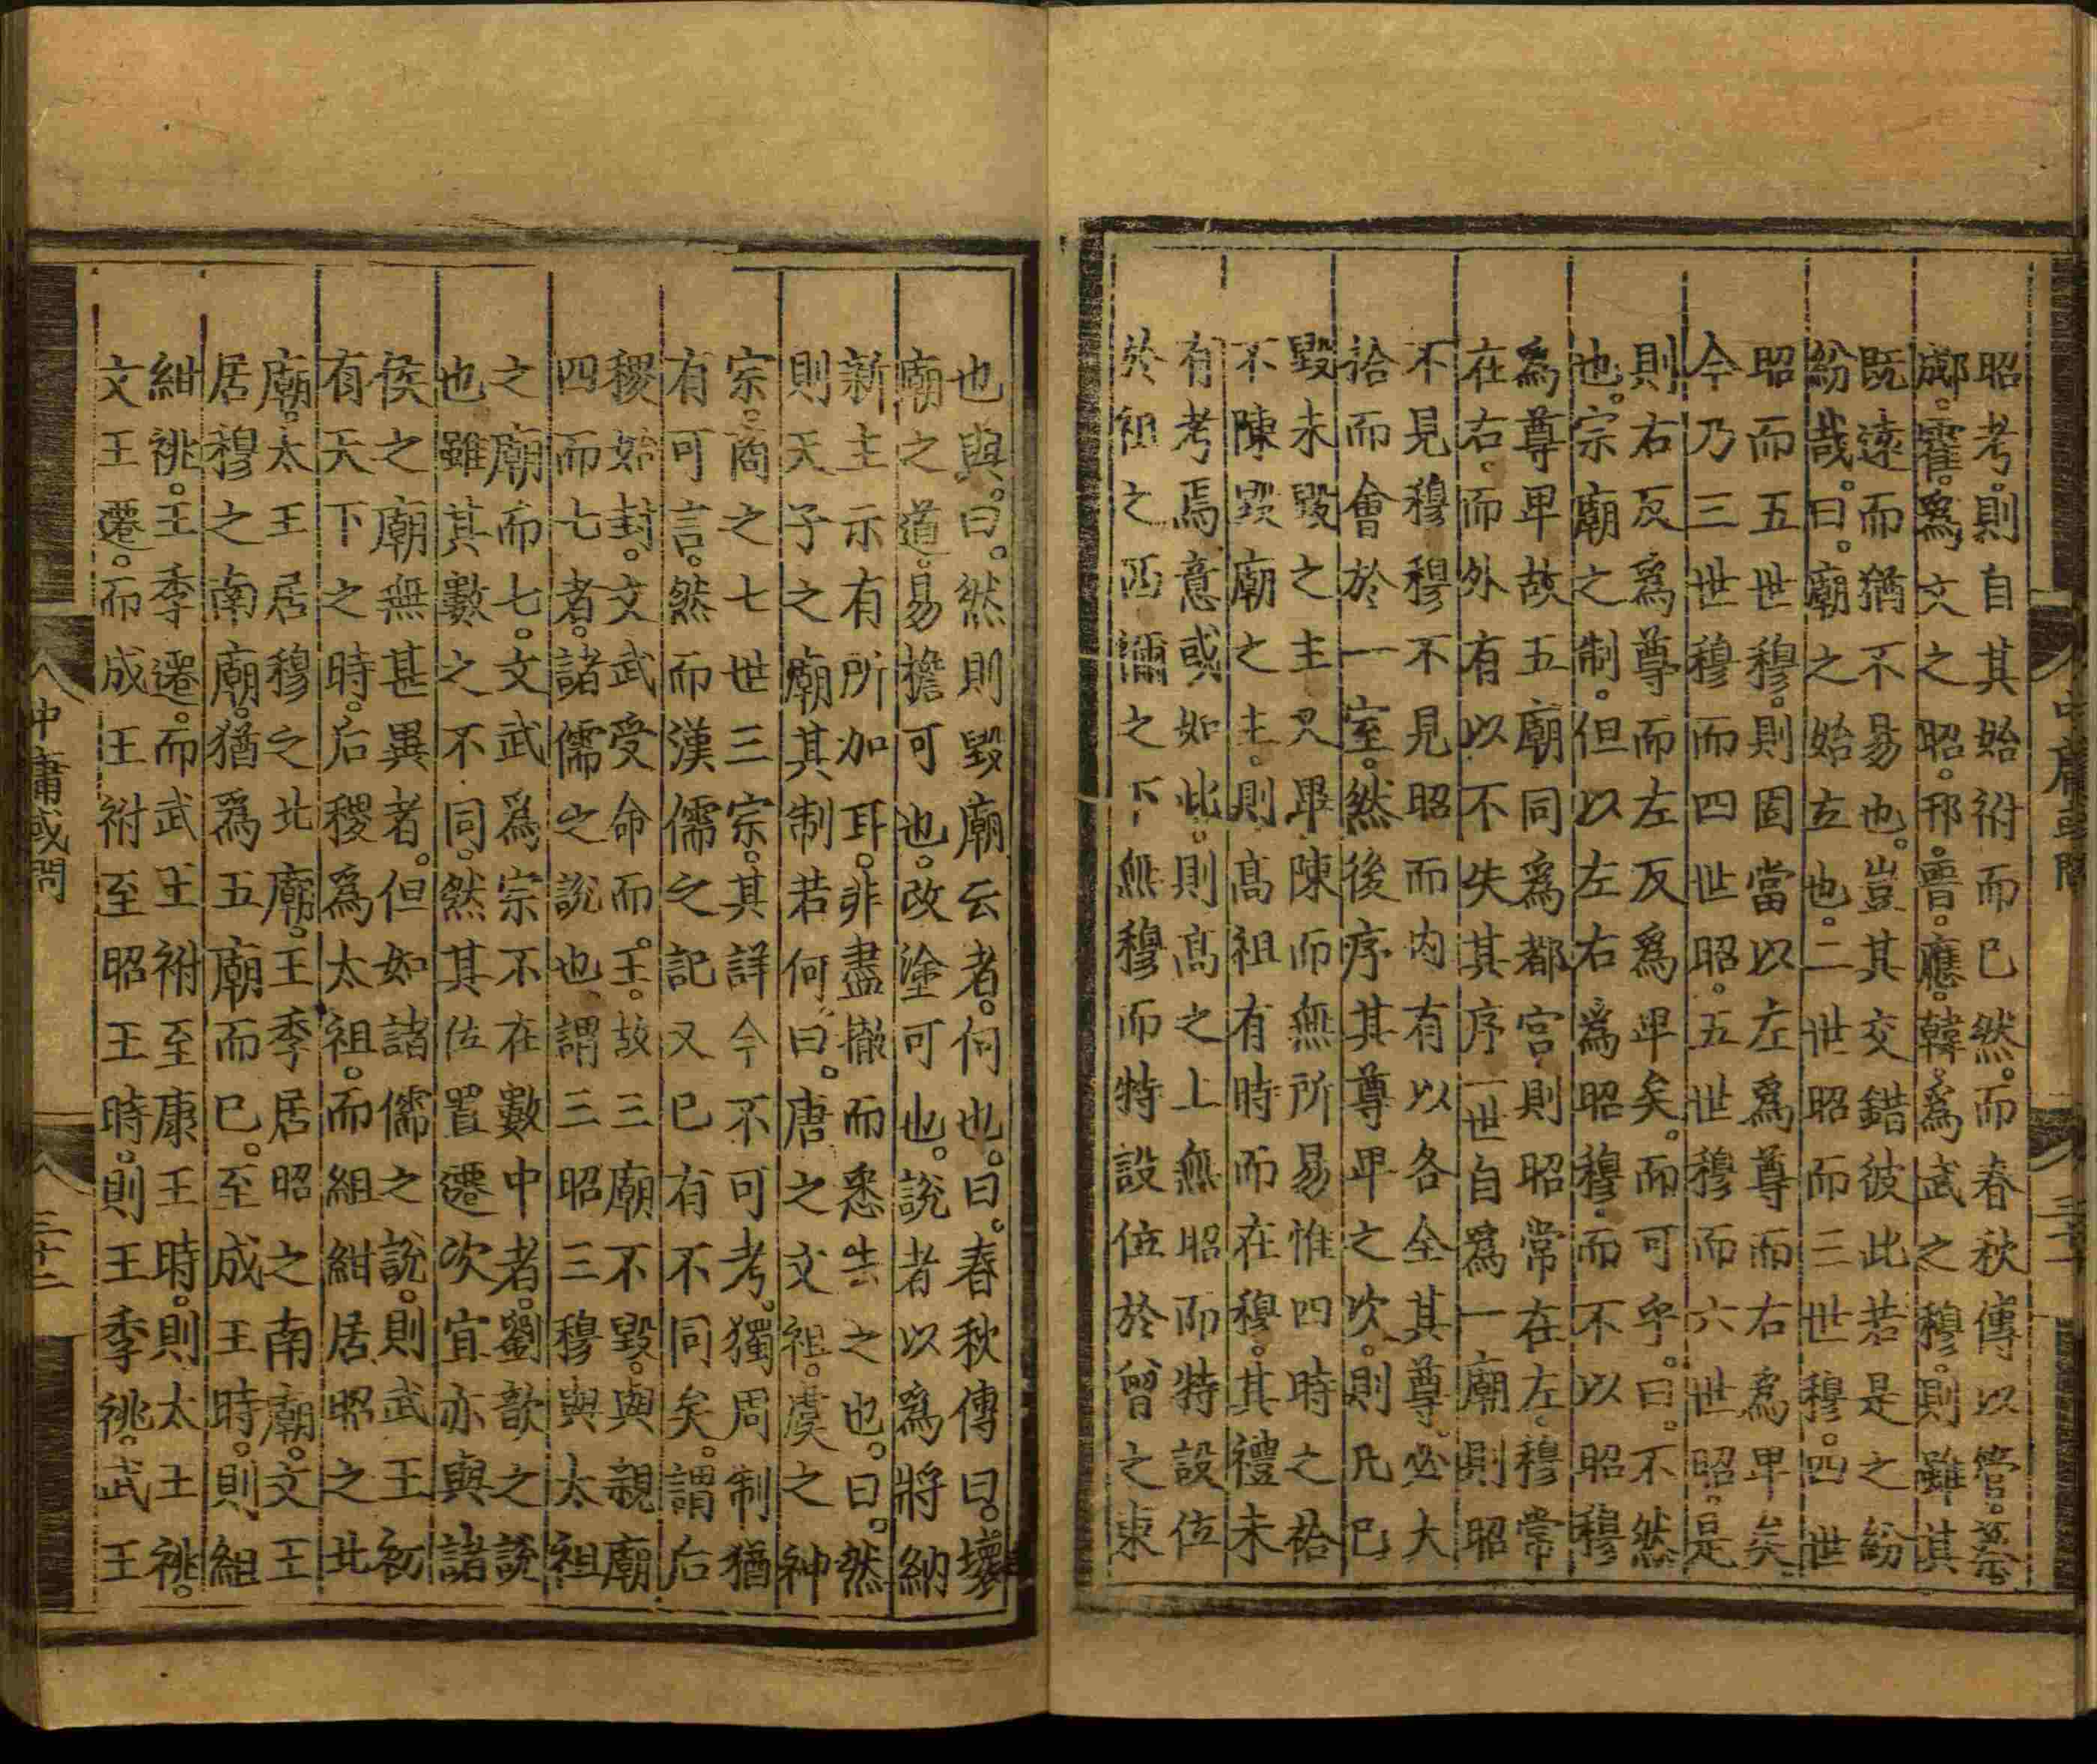 中庸或問
昭考。則自其始祔而已然。而春秋傳以管。蔡。
郕。霍。爲文之昭。邘。晉。應。韓。爲武之穆。則雖其
既遠而猶不易也。豈其交錯彼此若是之紛
紛哉。曰。廟之始立也。二世昭而三世穆。四世
昭而五世穆。則固當以左爲尊而右爲卑矣
今乃三世穆而四世昭。五世穆而六世昭。是
則右反爲尊而左反爲卑矣。而可乎。曰。不然
也。宗廟之制。但以左右爲昭穆。而不以昭穆
爲尊卑故五廟同爲都宮。則昭常在左。穆常
在右。而外有以不失其序一世自爲一廟則昭
不見穆穆不見昭而內有以各全其尊。必大
祫而會於一室。然後序其尊卑之次。則凡已
毀未毀之主又畢陳而無所易惟四時之祫
不陳毀廟之主。則高祖有時而在穆。其禮未
有考焉意或如此。則高之上無昭而特設位
於祖之西禰之下無穆而特設位於曾之東
也與。曰。然則毀廟云者。何也。曰。春秋傳曰。壞
廟之道。易檐可也。改塗可也。說者以爲將納
新主示有所加耳。非盡撤而悉去之也。曰。然
則天子之廟其制若何。曰。唐之文祖。虞之神
宗。商之七世三宗。其詳今不可考。獨周制猶
有可言。然而漢儒之記又已有不同矣。謂后
稷始封。文武受命而王。故三廟不毀。與親廟
四而七者。諸儒之說也。謂三昭三穆與太祖
之廟而七。文武爲宗不在數中者。劉歆之說
也雖其數之不同。然其位置遷次宜亦與諸
侯之廟無甚異者。但如諸儒之說。則武王初
有天下之時。后稷爲太祖。而組紺居昭之北
廟。太王居穆之北廟。王季居昭之南廟。文王
居穆之南廟。猶爲五廟而已。至成王時。則組
紺祧。王季遷。而武王祔至康王時。則太王祧。
文王遷。而成王祔至昭王時。則王季祧。武王
中庸或問 三十二